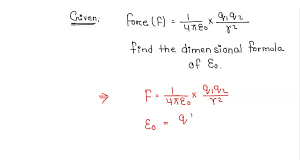 Given: Force (F) = \frac{1}{4πε₀} × \frac{q₁q₂}{r²}
find the dimensional formula
of ε₀.
⇒ F = \frac{1}{4πε₀} × \frac{q₁q₂}{r²}
ε₀ = q